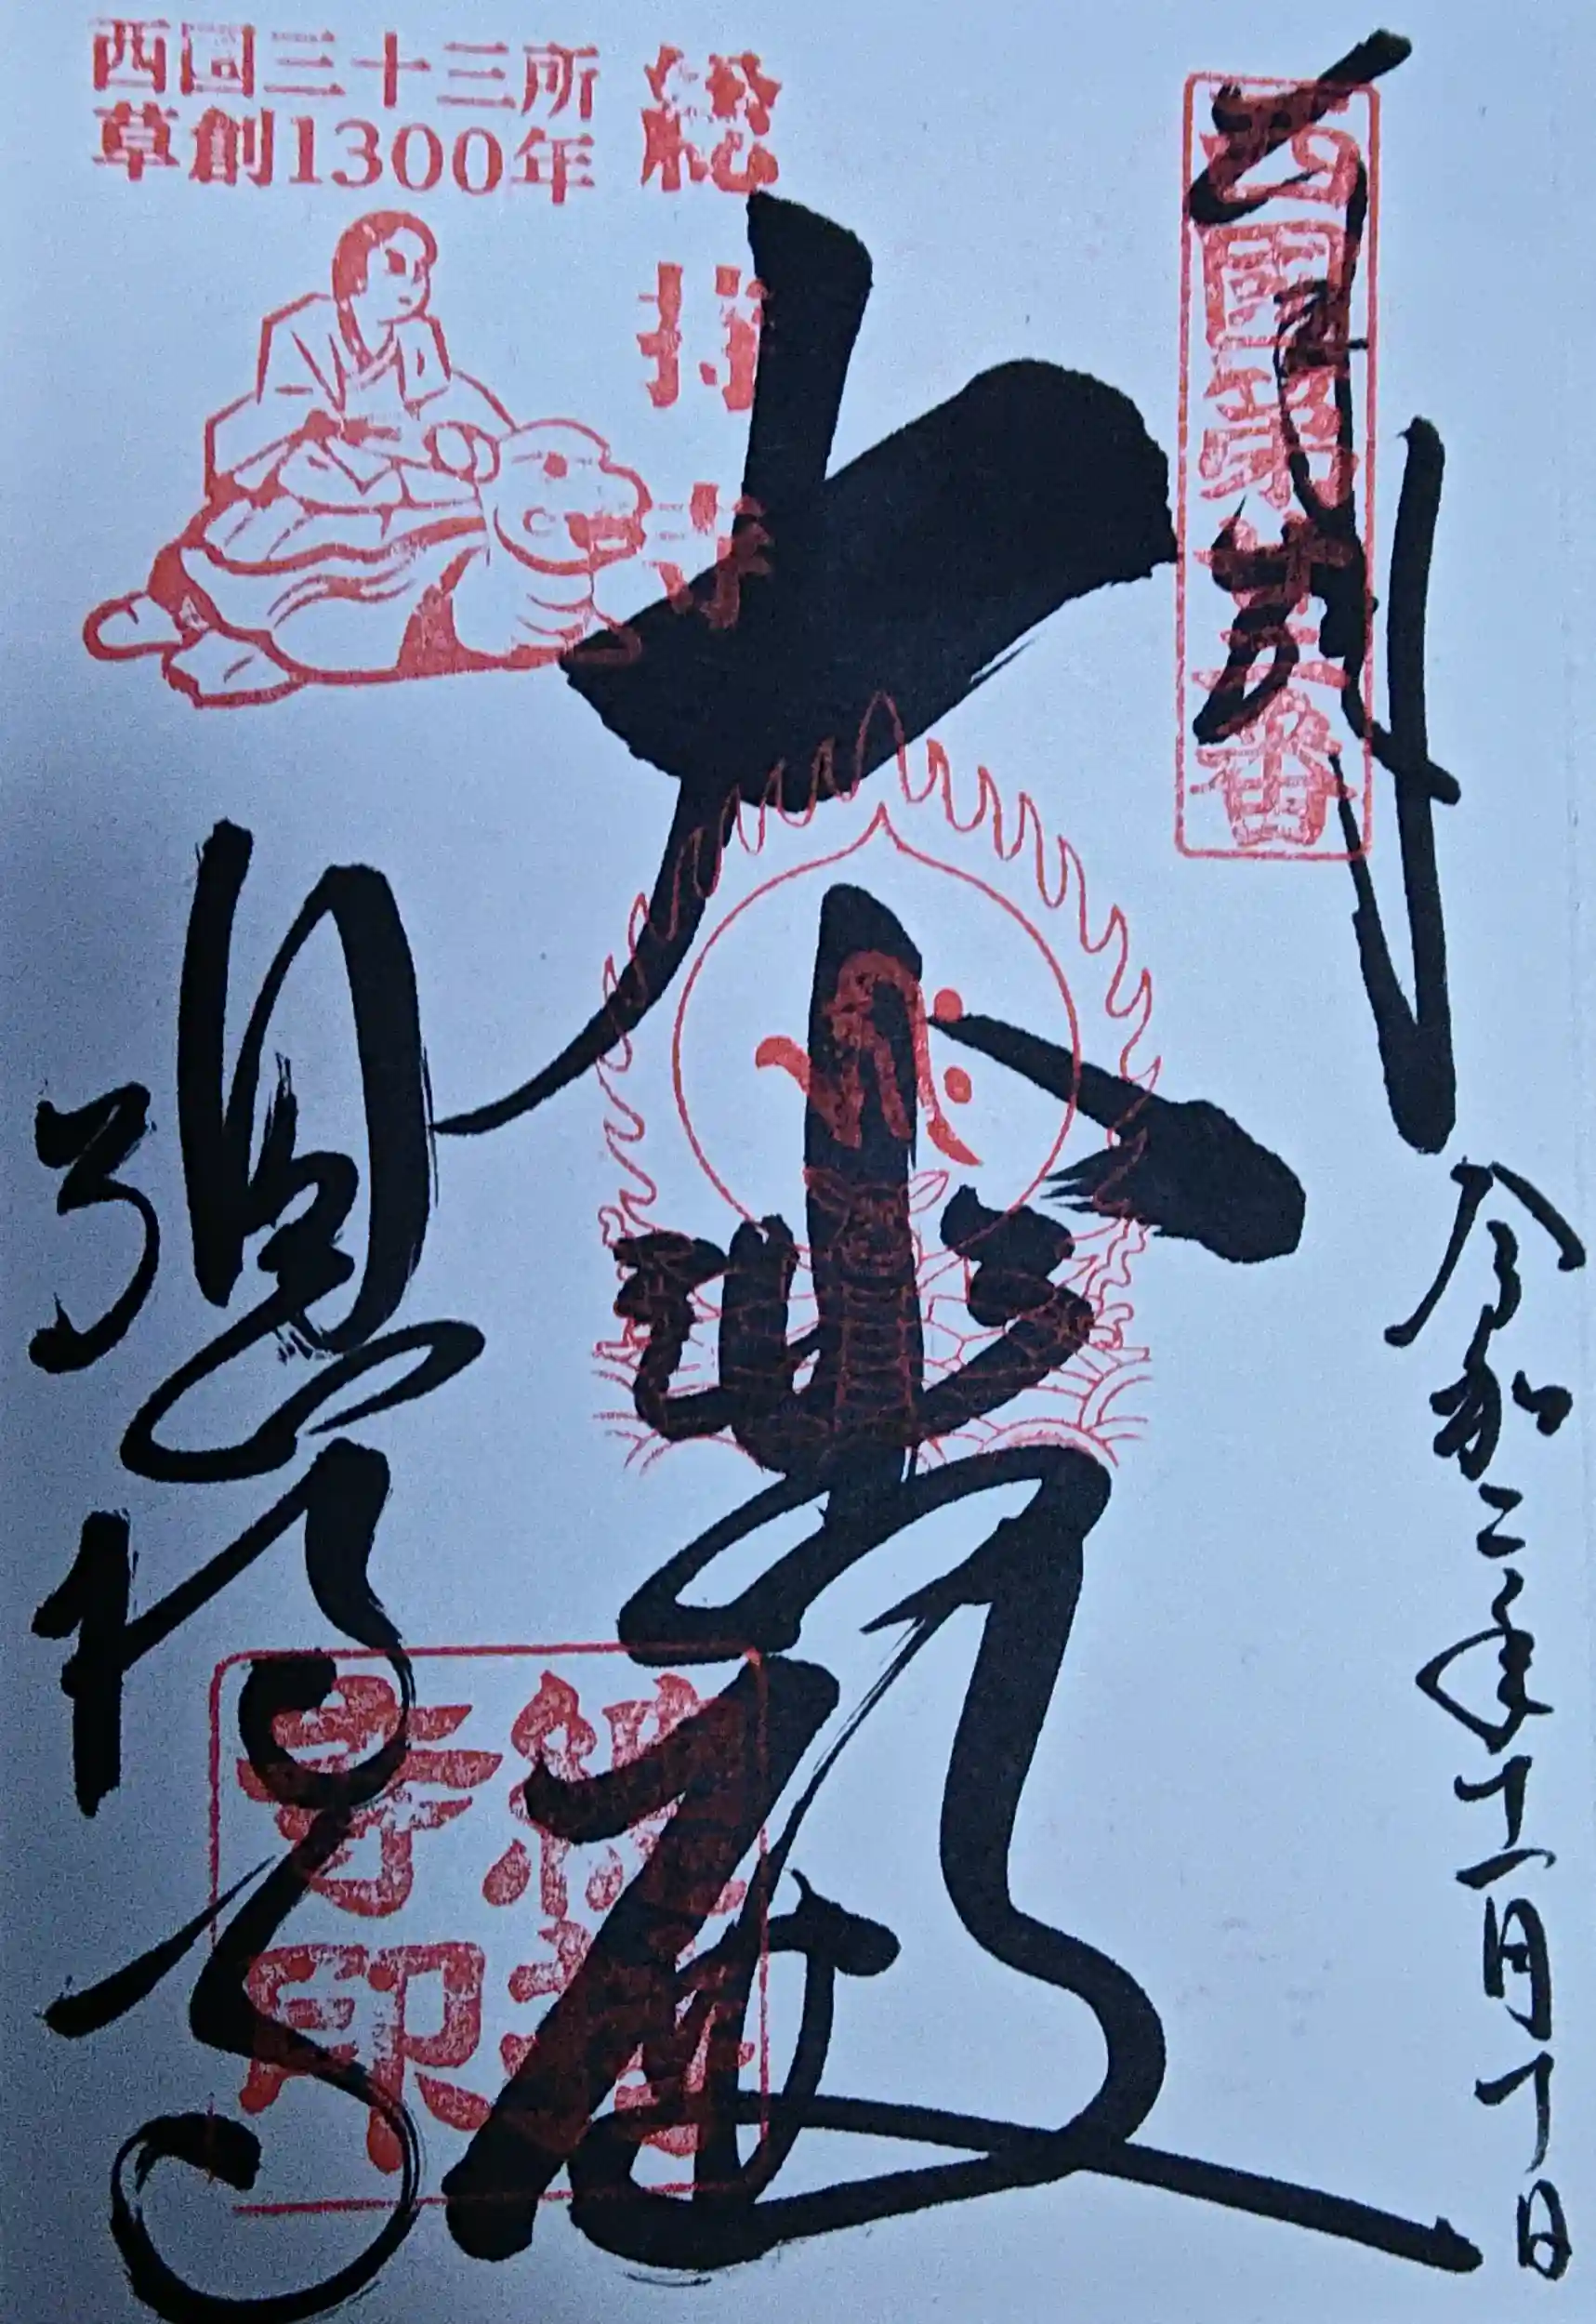 奉拝
西国第廿二番
令和二年十一月十日
大悲殿
総持寺
西国三十三所
草創1300年
総持寺
総持寺印